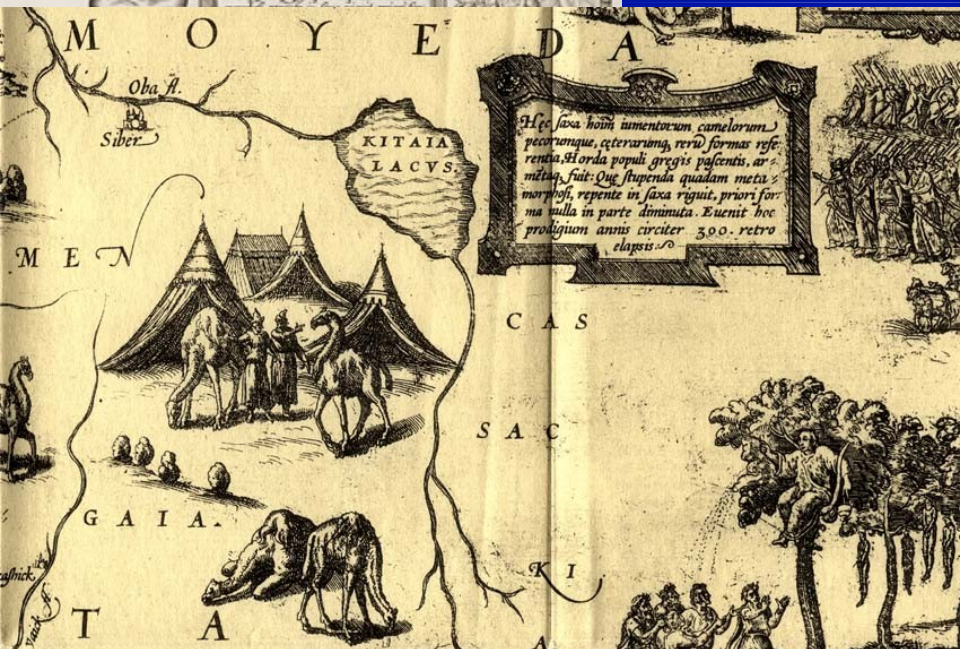 M O Y E D A
Oba fl.
Siber
KITAIA
LACVS.
Hęc saxa hoim̄ iumentorum camelorum
pecorumque, cęterarumq́; rerū formas refe
rentia, Horda populi gregis pascentis, ar-
mētaq́; fuit: Quę stupenda quadam meta-
morphosi, repente in saxa riguit, priori for-
ma nulla in parte diminuta. Euenit hoc
prodigium annis circiter 300. retro
elapsis.
MEN
CAS
SAC
GAIA.
KI
T A
A